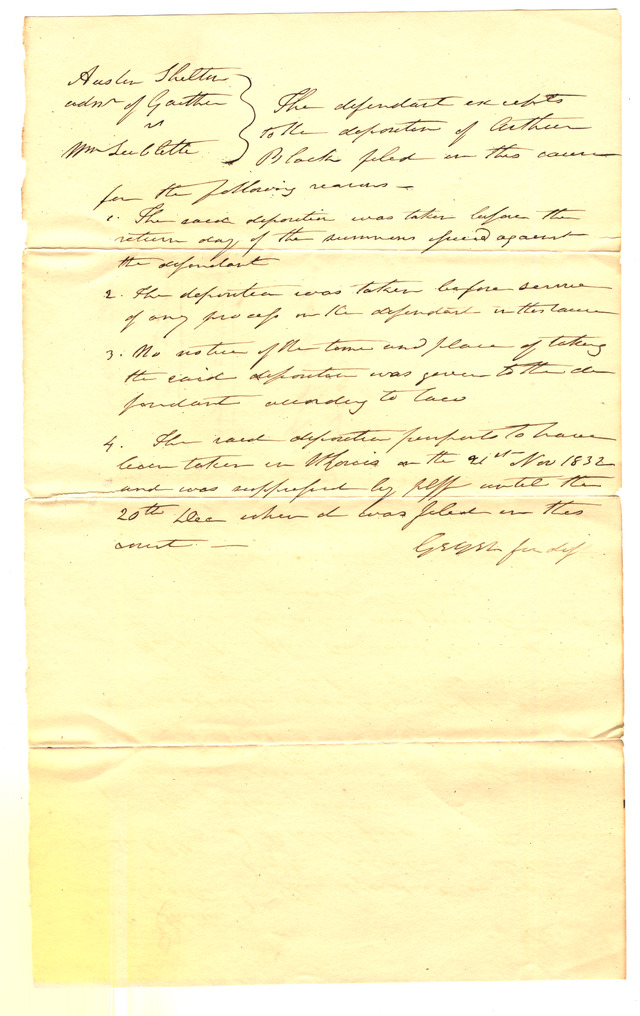 Austin Shelton
admr of Gaither
vs
Wm Sublette
The defendant excepts
to the deposition of Arthur
Black filed in this cause
for the following reasons –
1. The said deposition was taken before the
return day of the summons issued against
the defendant
2. The deposition was taken before service
of any process on the defendant in this cause
3. No notice of the time and place of taking
the said deposition was given to the de
fendant according to law
4. The said deposition purports to have
been taken in St Louis on the 21st Nov 1832
and was suppressed by plff until the
20th Dec when it was filed in this
court –
for def